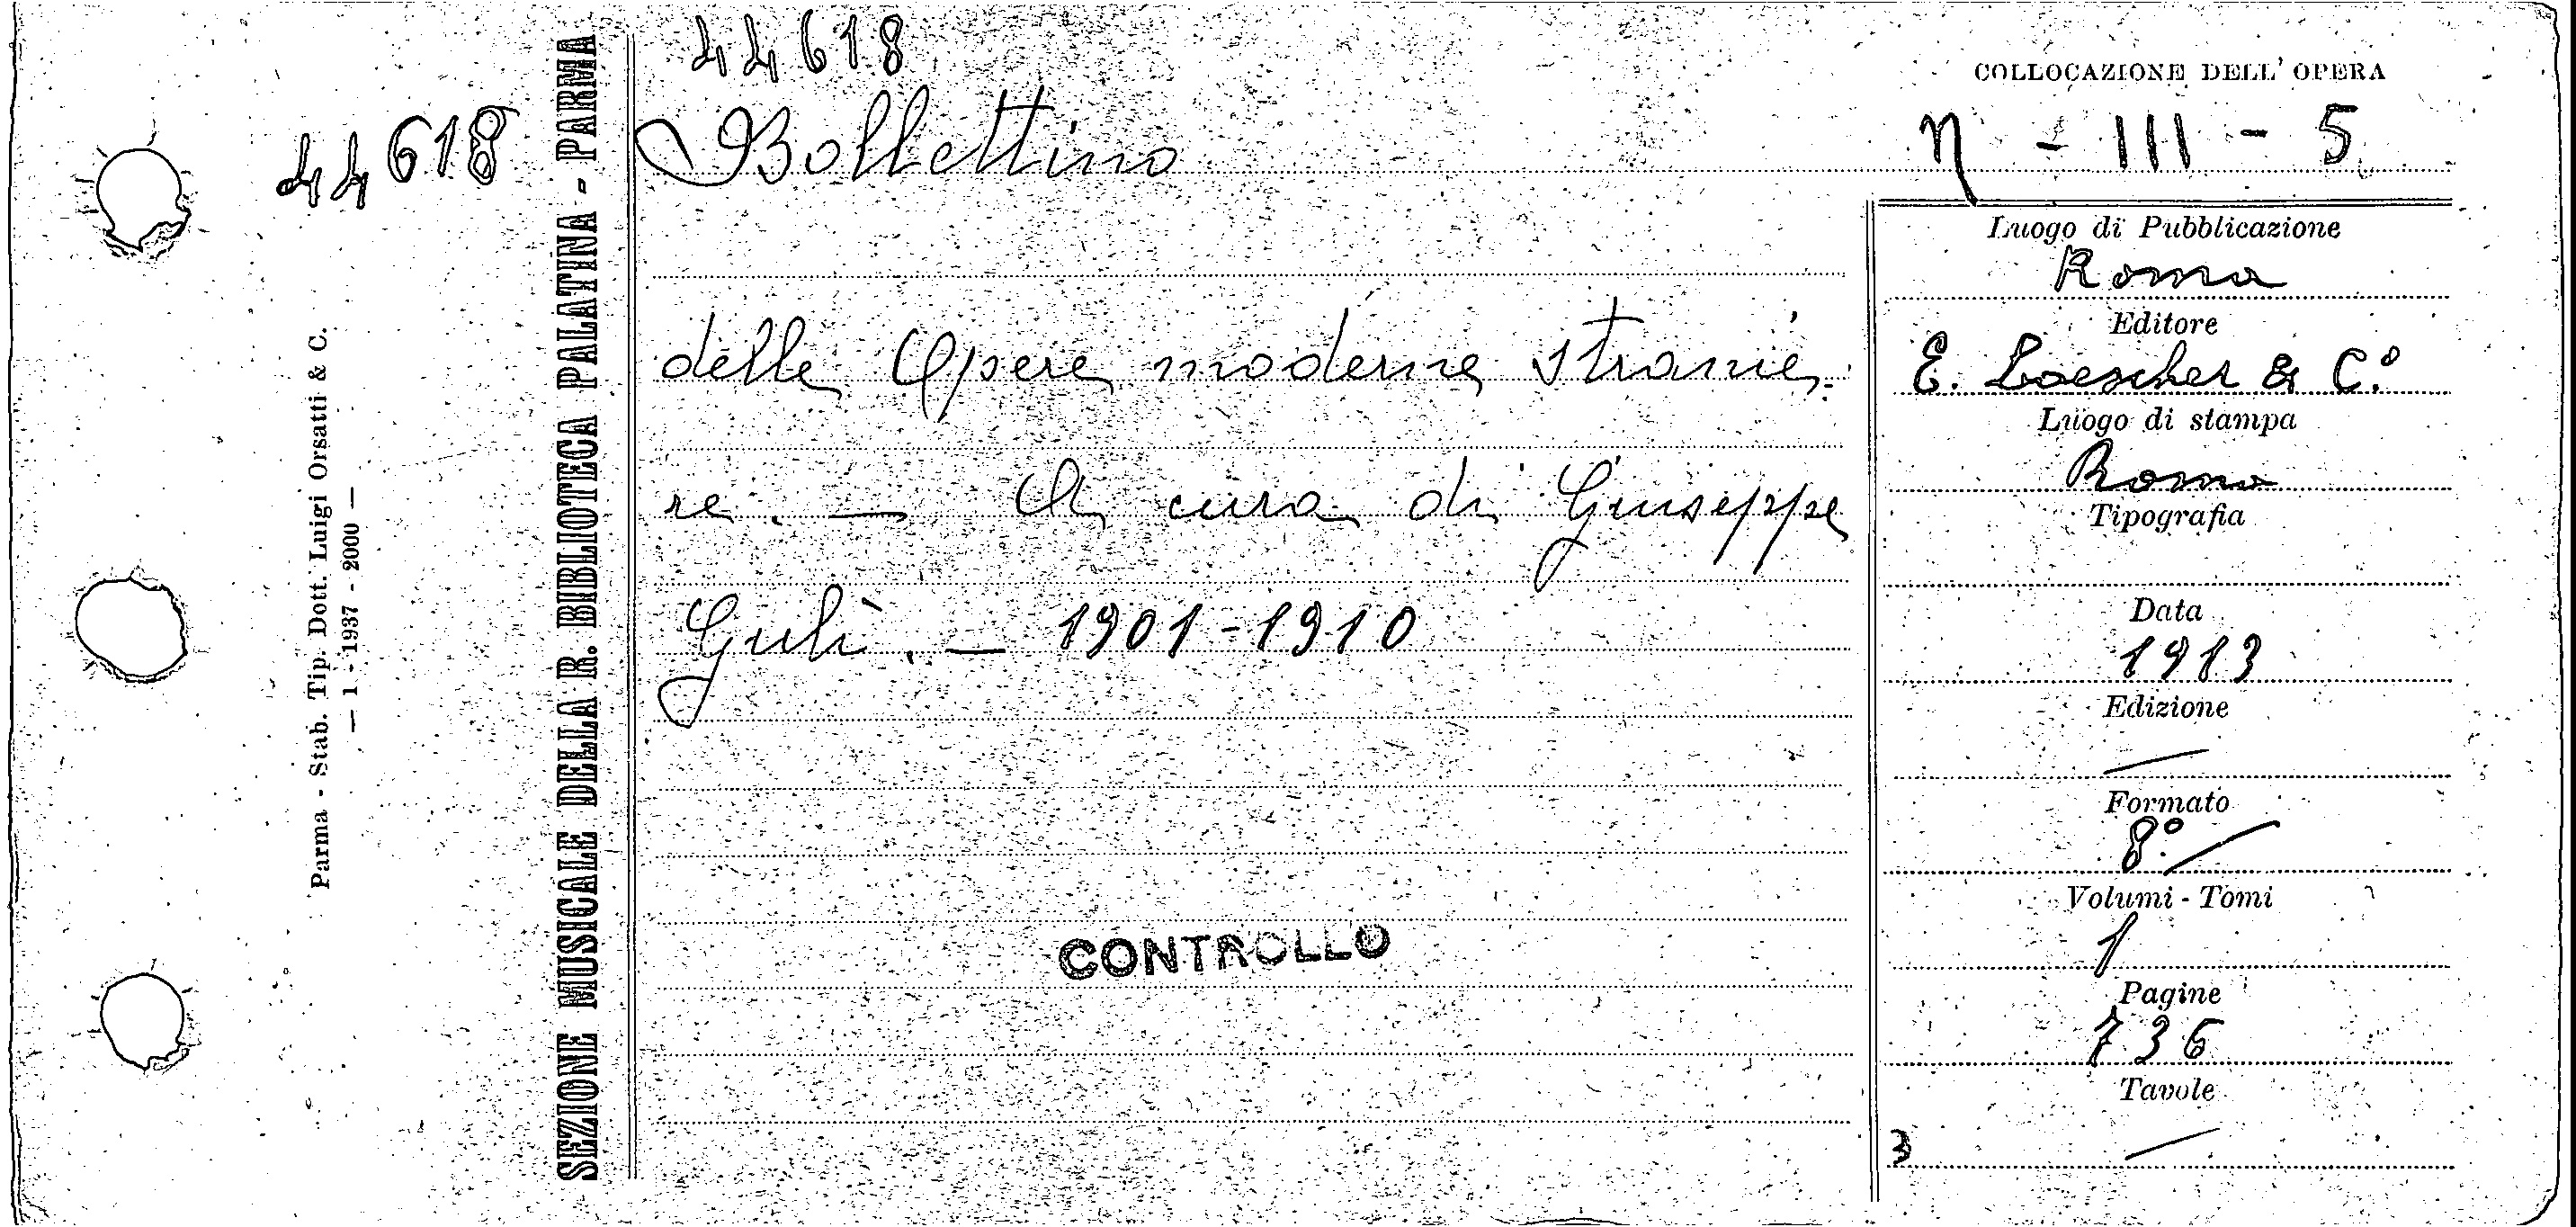 44618
44618
Parma - Stab. Tip. Dott. Luigi Orsatti & C.
— 1 - 1937 - 2000 —
SEZIONE MUSICALE DELLA R. BIBLIOTECA PALATINA - PARMA
Bollettino
delle Opere moderne stranie-
re. — A cura di Giuseppe
Gulì. — 1901-1910
CONTROLLO
COLLOCAZIONE DELL'OPERA
η - III - 5
Luogo di Pubblicazione
Roma
Editore
E. Loescher & C.º
Luogo di stampa
Roma
Tipografia
Data
1913
Edizione
—
Formato
8º
Volumi - Tomi
1
Pagine
736
Tavole
—
3